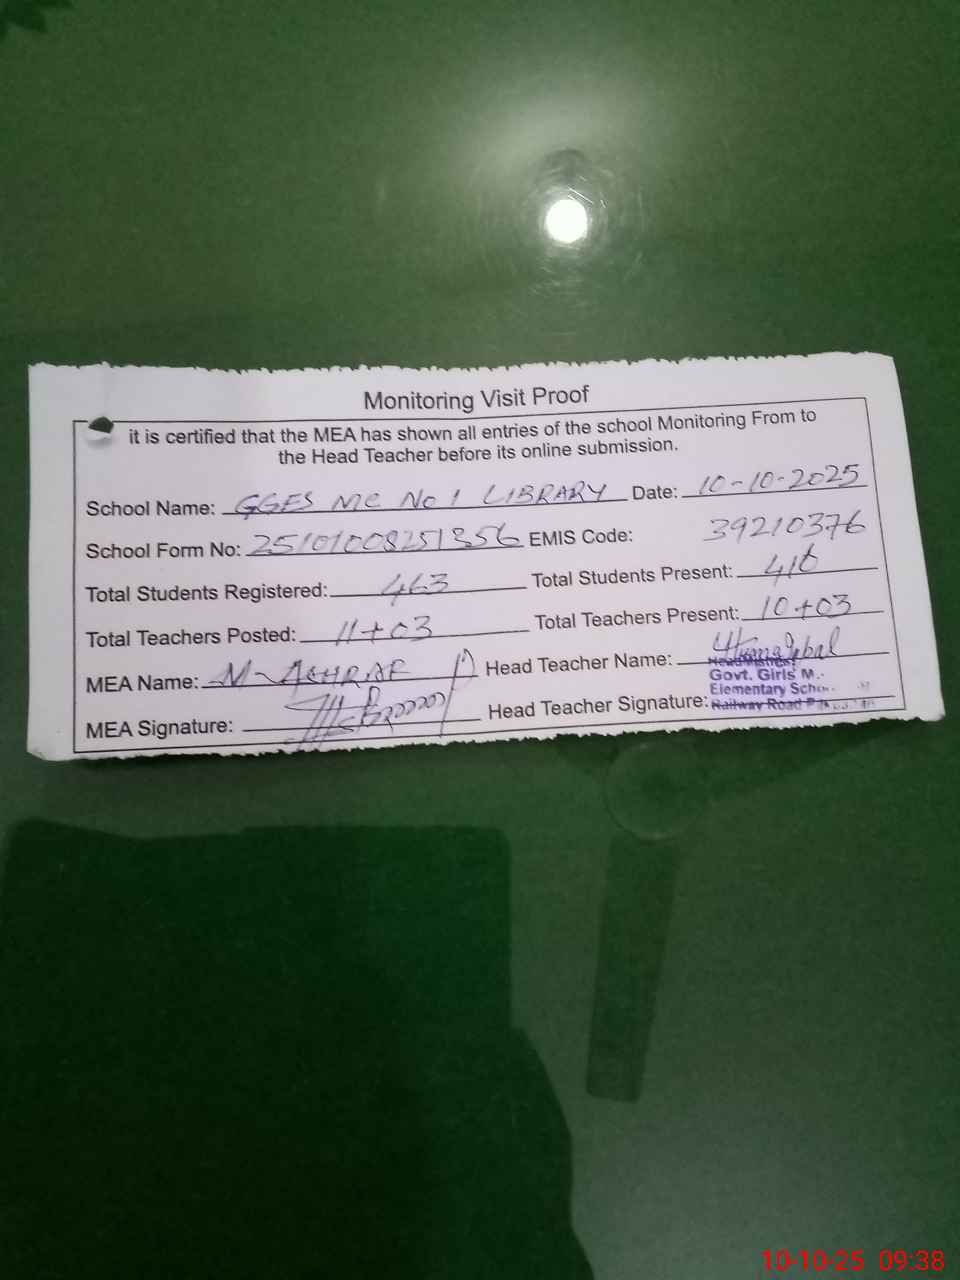 Monitoring Visit Proof
it is certified that the MEA has shown all entries of the school Monitoring From to
the Head Teacher before its online submission.
School Name: GGES MC No 1 LIBRARY Date: 10-10-2025
School Form No: 25101008251356 EMIS Code: 39210376
Total Students Registered: 463 Total Students Present: 416
Total Teachers Posted: 11+03 Total Teachers Present: 10+03
MEA Name: M-ASHRAF Head Teacher Name: Huma Iqbal
Headmistress
Govt. Girls M.
Elementary
MEA Signature: Head Teacher Signature: Railway Road
10-10-25 09:38